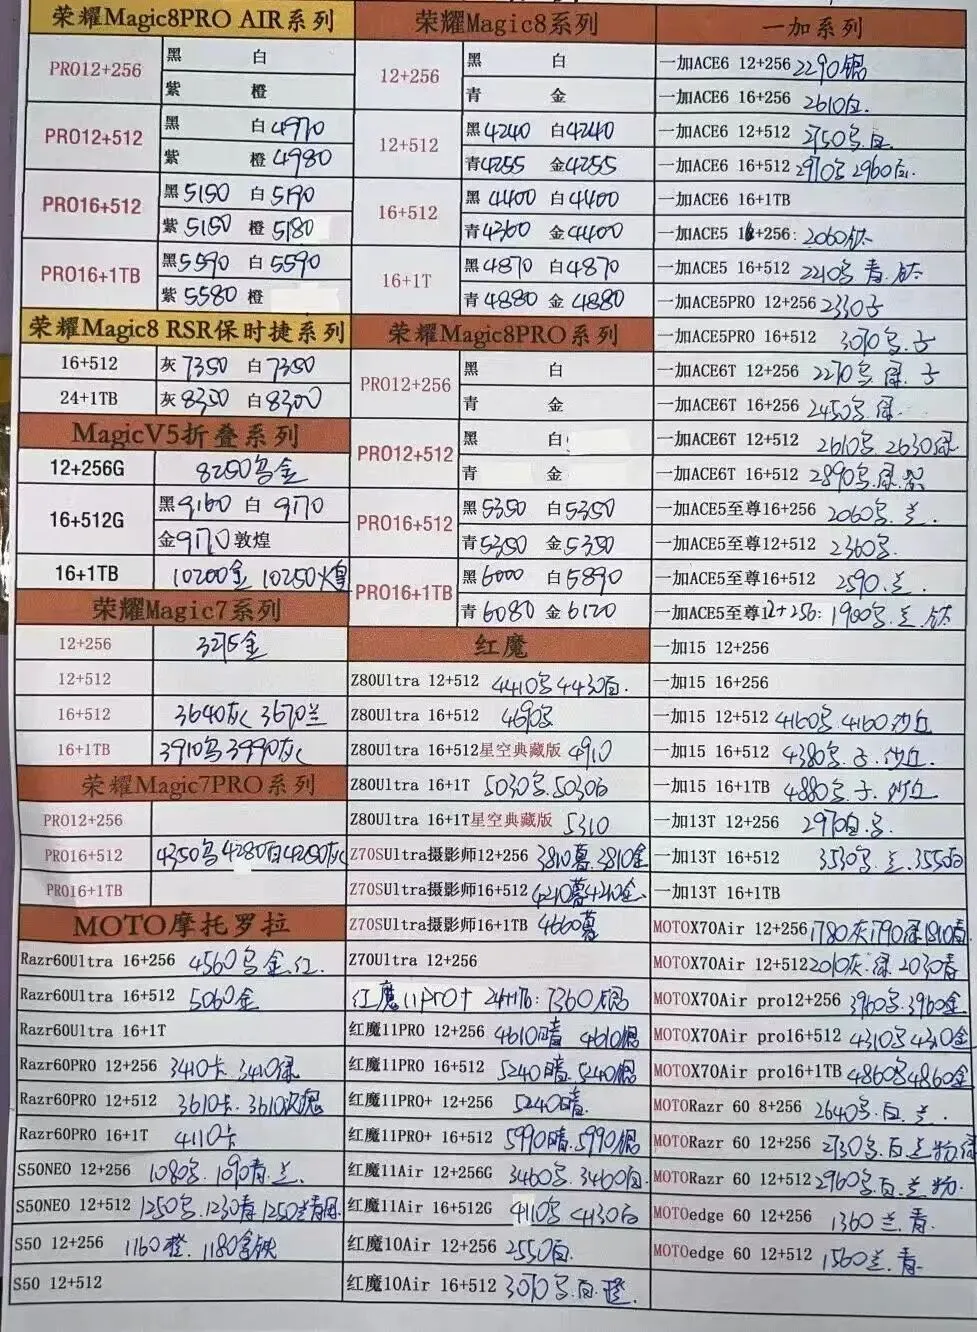 荣耀Magic8PRO AIR系列
PRO12+256 黑 白
紫 橙
PRO12+512 黑 白4970
紫 橙4980
PRO16+512 黑5150 白5190
紫5150 橙5180
PRO16+1TB 黑5590 白5590
紫5580 橙
荣耀Magic8 RSR保时捷系列
16+512 灰7350 白7350
24+1TB 灰8350 白8300
MagicV5折叠系列
12+256G 8250乌金
16+512G 黑9160 白9170
金9170敦煌
16+1TB 10200金 10250火皇
荣耀Magic7系列
12+256 3275金
12+512
16+512 3640灰 3670兰
16+1TB 3910乌3990灰
荣耀Magic7PRO系列
PRO12+256
PRO16+512 4350乌4280白4250灰
PRO16+1TB
MOTO摩托罗拉
Razr60Ultra 16+256 4560乌金.红.
Razr60Ultra 16+512 5060金
Razr60Ultra 16+1T
Razr60PRO 12+256 3410卡.3410绿
Razr60PRO 12+512 3610卡.3610玫瑰
Razr60PRO 16+1T 4110卡
S50NEO 12+256 1080乌.1090青.兰.
S50NEO 12+512 1250乌.1230青1250兰青
S50 12+256 1160橙.1180拿铁
S50 12+512
荣耀Magic8系列
12+256 黑 白
青 金
12+512 黑4240 白4240
青4255 金4255
16+512 黑4400 白4400
青4360 金4400
16+1T 黑4870 白4870
青4880 金4880
荣耀Magic8PRO系列
PRO12+256 黑 白
青 金
PRO12+512 黑 白
青 金
PRO16+512 黑5350 白5350
青5350 金5350
PRO16+1TB 黑6000 白5890
青6080 金6120
红魔
Z80Ultra 12+512 4410乌4430白.
Z80Ultra 16+512 4690乌
Z80Ultra 16+512星空典藏版 4910
Z80Ultra 16+1T 5030乌.5030白
Z80Ultra 16+1T星空典藏版 5310
Z70SUltra摄影师12+256 3810暮.3810金
Z70SUltra摄影师16+512 4210暮4210金.
Z70SUltra摄影师16+1TB 4660暮
Z70Ultra 12+256
红魔11Pro+ 24+1TB: 7360银
红魔11PRO 12+256 4610暗 4610银
红魔11PRO 16+512 5240暗.5240银
红魔11PRO+ 12+256 5240暗.
红魔11PRO+ 16+512 5990暗.5990银
红魔11Air 12+256G 3460乌.3460白
红魔11Air 16+512G 4110乌 4130白
红魔10Air 12+256 2550白.
红魔10Air 16+512 3070乌.白.橙.
一加系列
一加ACE6 12+256 2290银
一加ACE6 16+256 2610白.
一加ACE6 12+512 2750乌.白.
一加ACE6 16+512 2970乌2960白.
一加ACE6 16+1TB
一加ACE5 1+256: 2060钛
一加ACE5 16+512 2210乌.青.钛
一加ACE5PRO 12+256 2330子
一加ACE5PRO 16+512 3070乌.子
一加ACE6T 12+256 2270乌.绿.子
一加ACE6T 16+256 2450乌.绿.
一加ACE6T 12+512 2610乌.2630绿
一加ACE6T 16+512 2890乌.绿.
一加ACE5至尊16+256 2060乌.兰.
一加ACE5至尊12+512 2360乌.
一加ACE5至尊16+512 2590.兰
一加ACE5至尊12+256: 1900乌.兰.钛
一加15 12+256
一加15 16+256
一加15 12+512 4160乌.4160沙丘
一加15 16+512 4380乌.子.沙丘.
一加15 16+1TB 4880乌.子.沙丘
一加13T 12+256 2970白.乌.
一加13T 16+512 3530乌.兰.3550白
一加13T 16+1TB
MOTOX70Air 12+256 1780灰1790绿1810青
MOTOX70Air 12+512 2010灰.绿2030青
MOTOX70Air pro12+256 3960乌.3960金
MOTOX70Air pro16+512 4310乌4310金
MOTOX70Air pro16+1TB 4860乌4860金
MOTORazr 60 8+256 2640乌.白.兰.
MOTORazr 60 12+256 2730乌.白.兰粉绿
MOTORazr 60 12+512 2960乌.白.兰.粉.
MOTOedge 60 12+256 1360兰.青.
MOTOedge 60 12+512 1560兰.青.